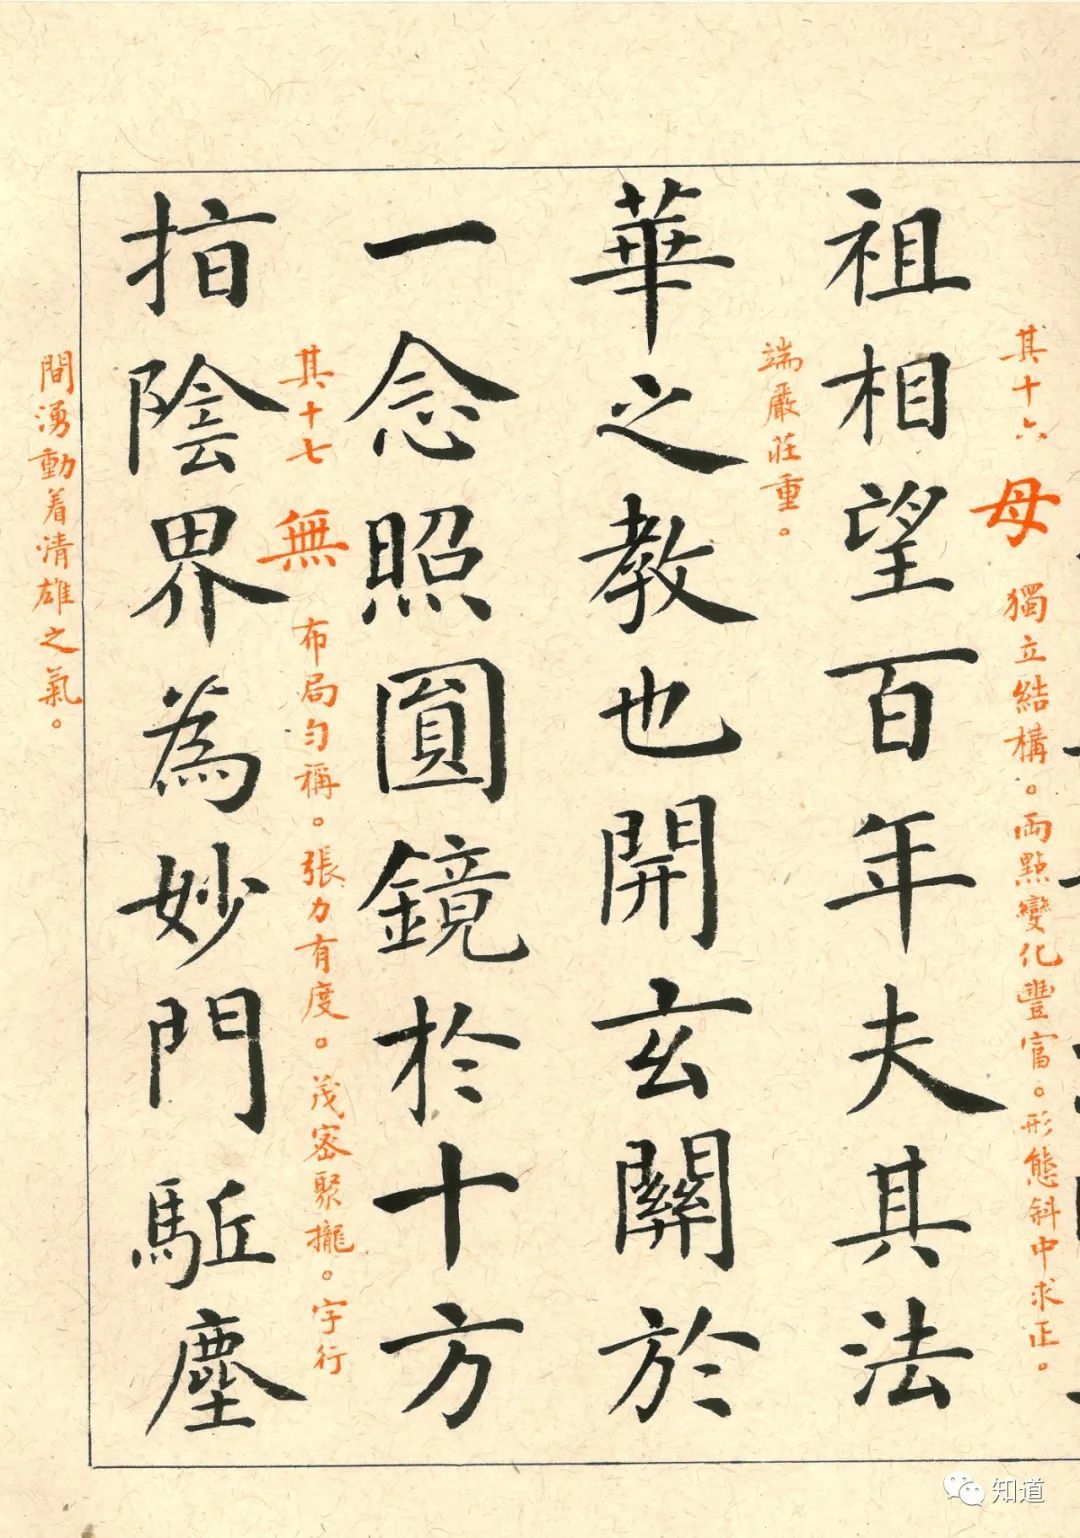 其十六 母 獨立結構。両點變化豐富。形態斜中求正。
祖相望百年夫其法
端嚴莊重。
華之教也開玄關於
一念照圓鏡扵十方
其十七 無 布局勻稱。張力有度。茂密聚攏。字行
指陰界為妙門駈塵
間湧動着清雄之氣。
知道